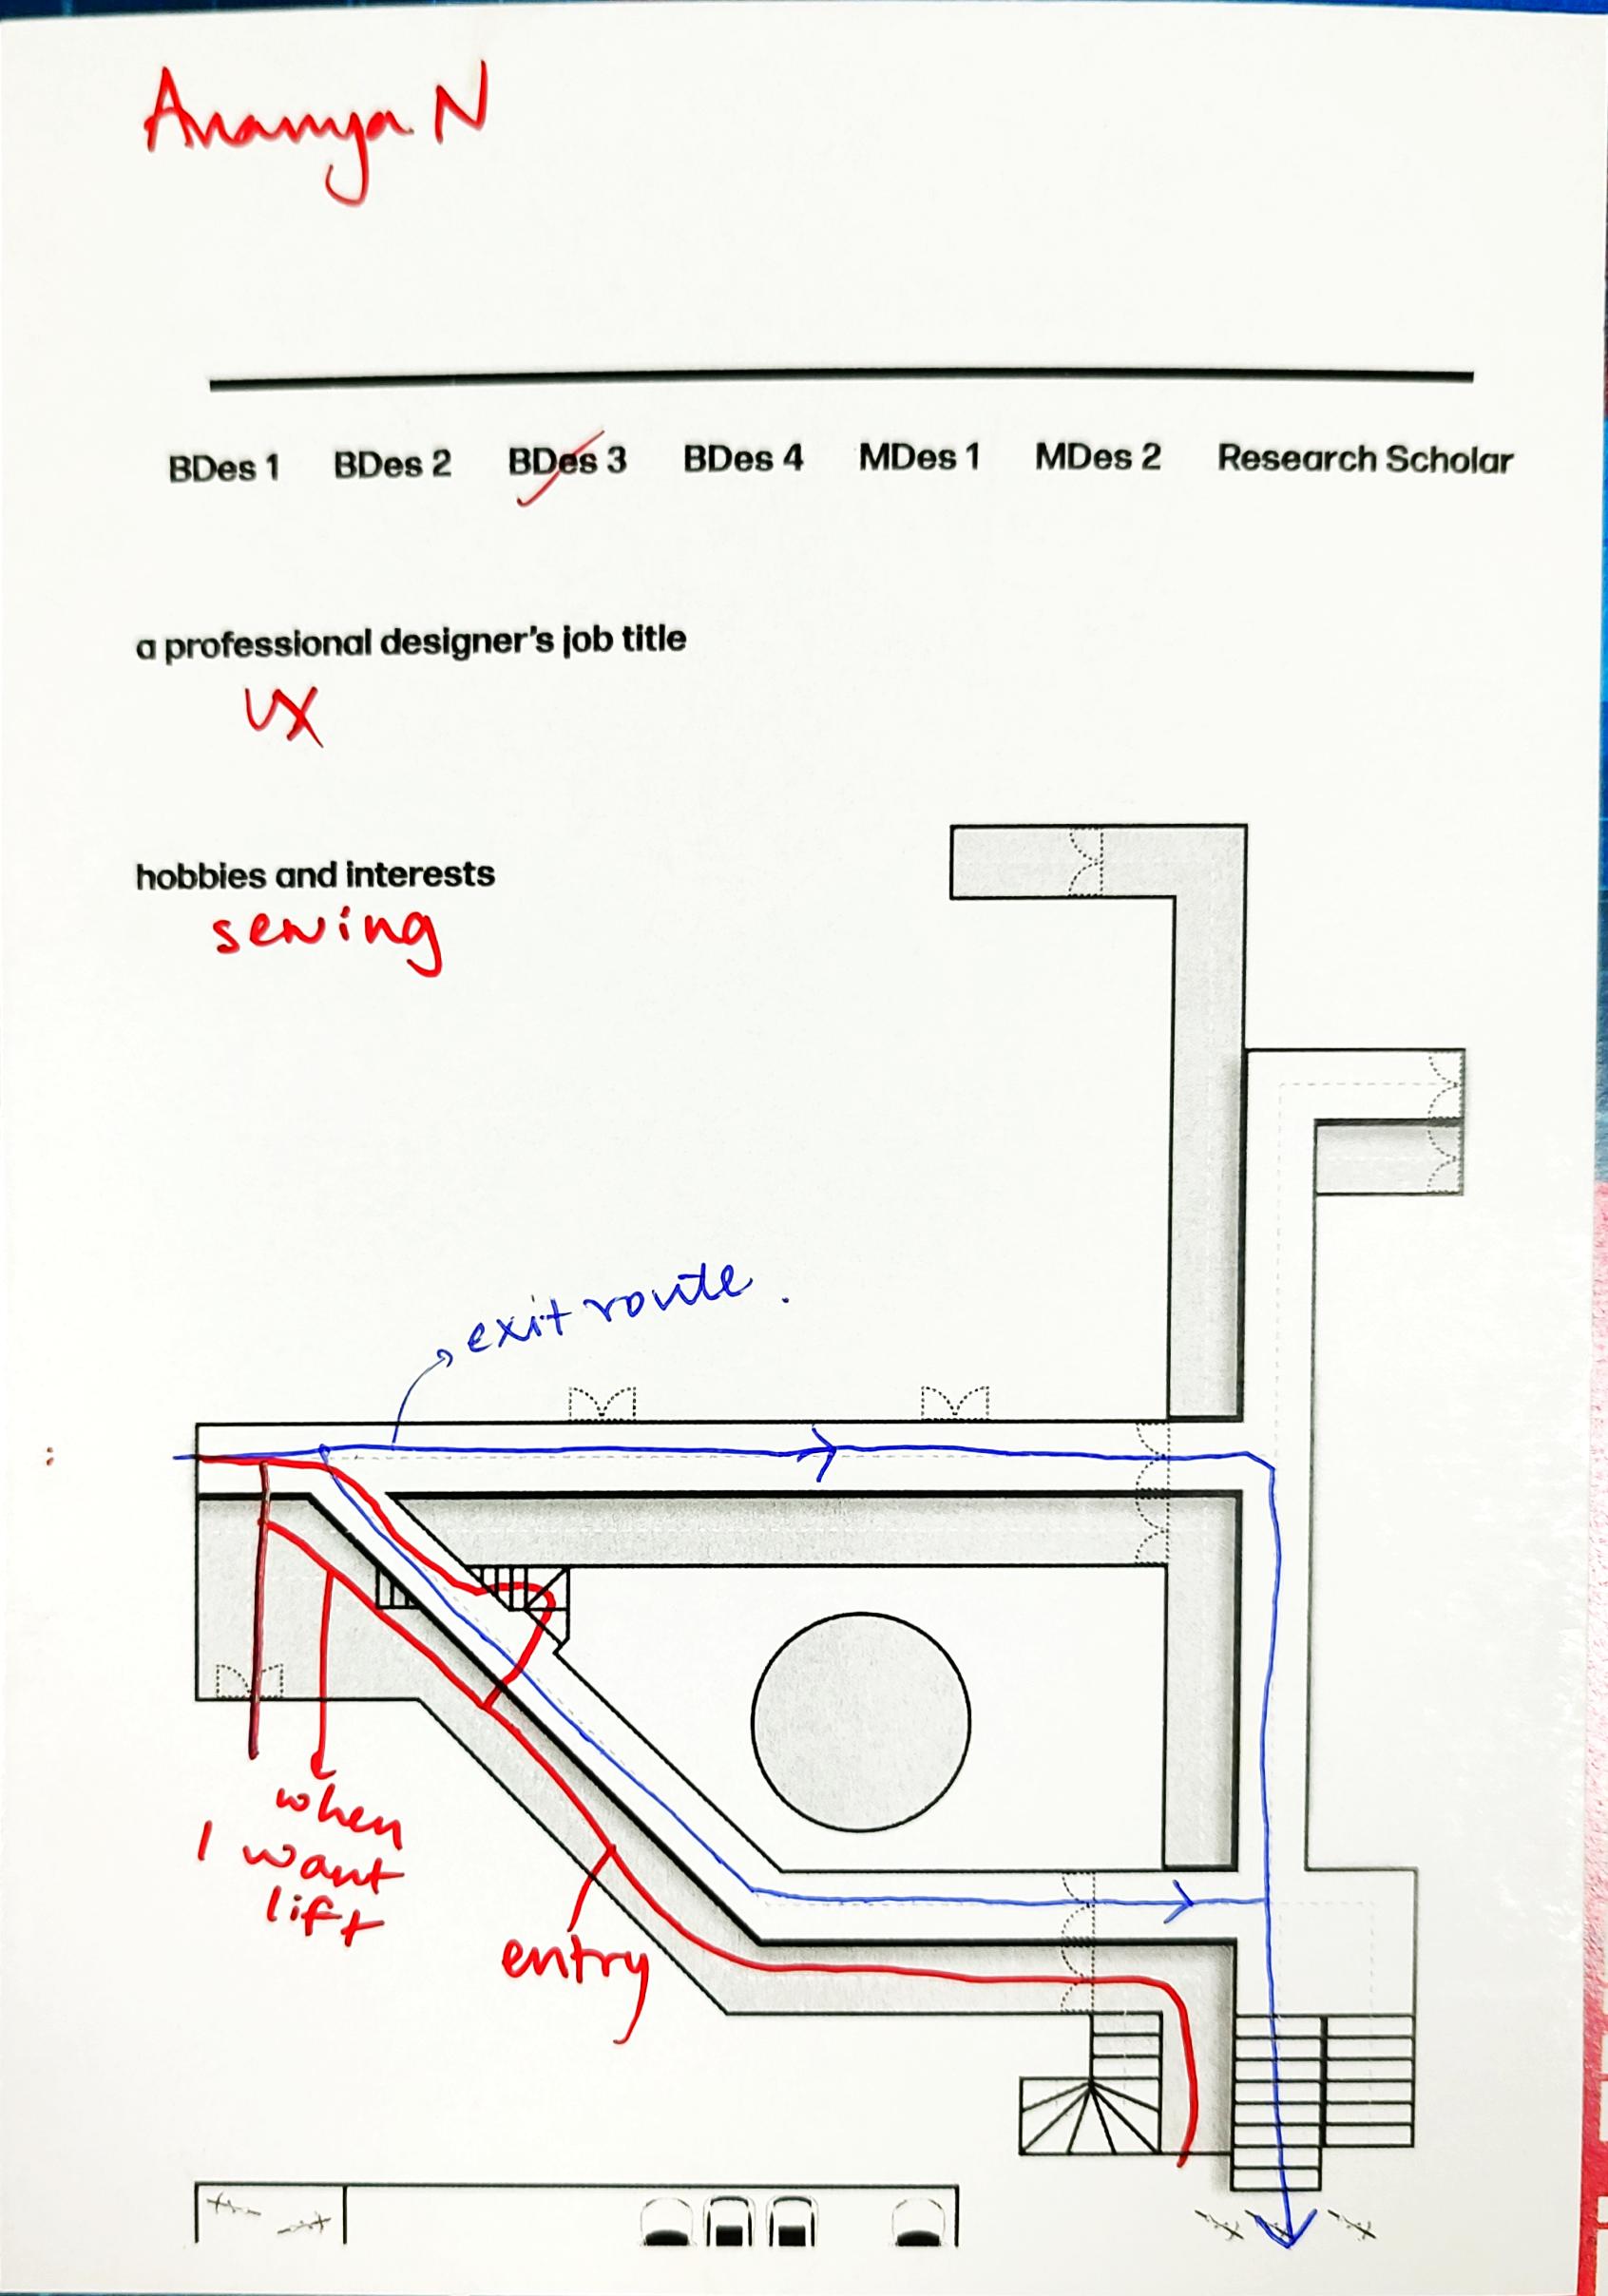 Ananya N
BDes 1 BDes 2 BDes 3 BDes 4 MDes 1 MDes 2 Research Scholar
a professional designer's job title
UX
hobbies and interests
sewing
exit route.
when
I want
lift
entry